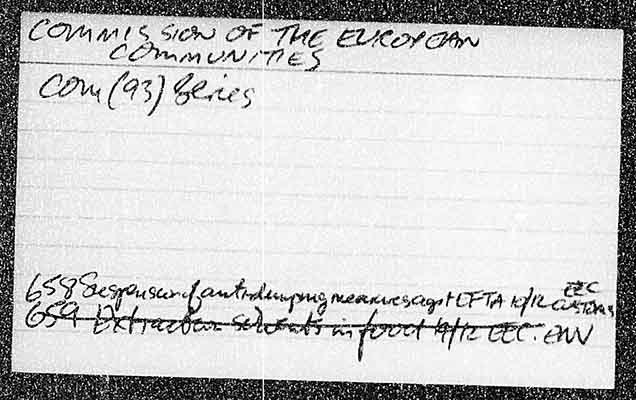 COMMISSION OF THE EUROPEAN
COMMUNITIES
COM (93) Series
EEC
658 Suspension of antidumping measures agst EFTA 10/12 CUSTOMS
659 Extraction solvents in food 9/12 EEC. ENV